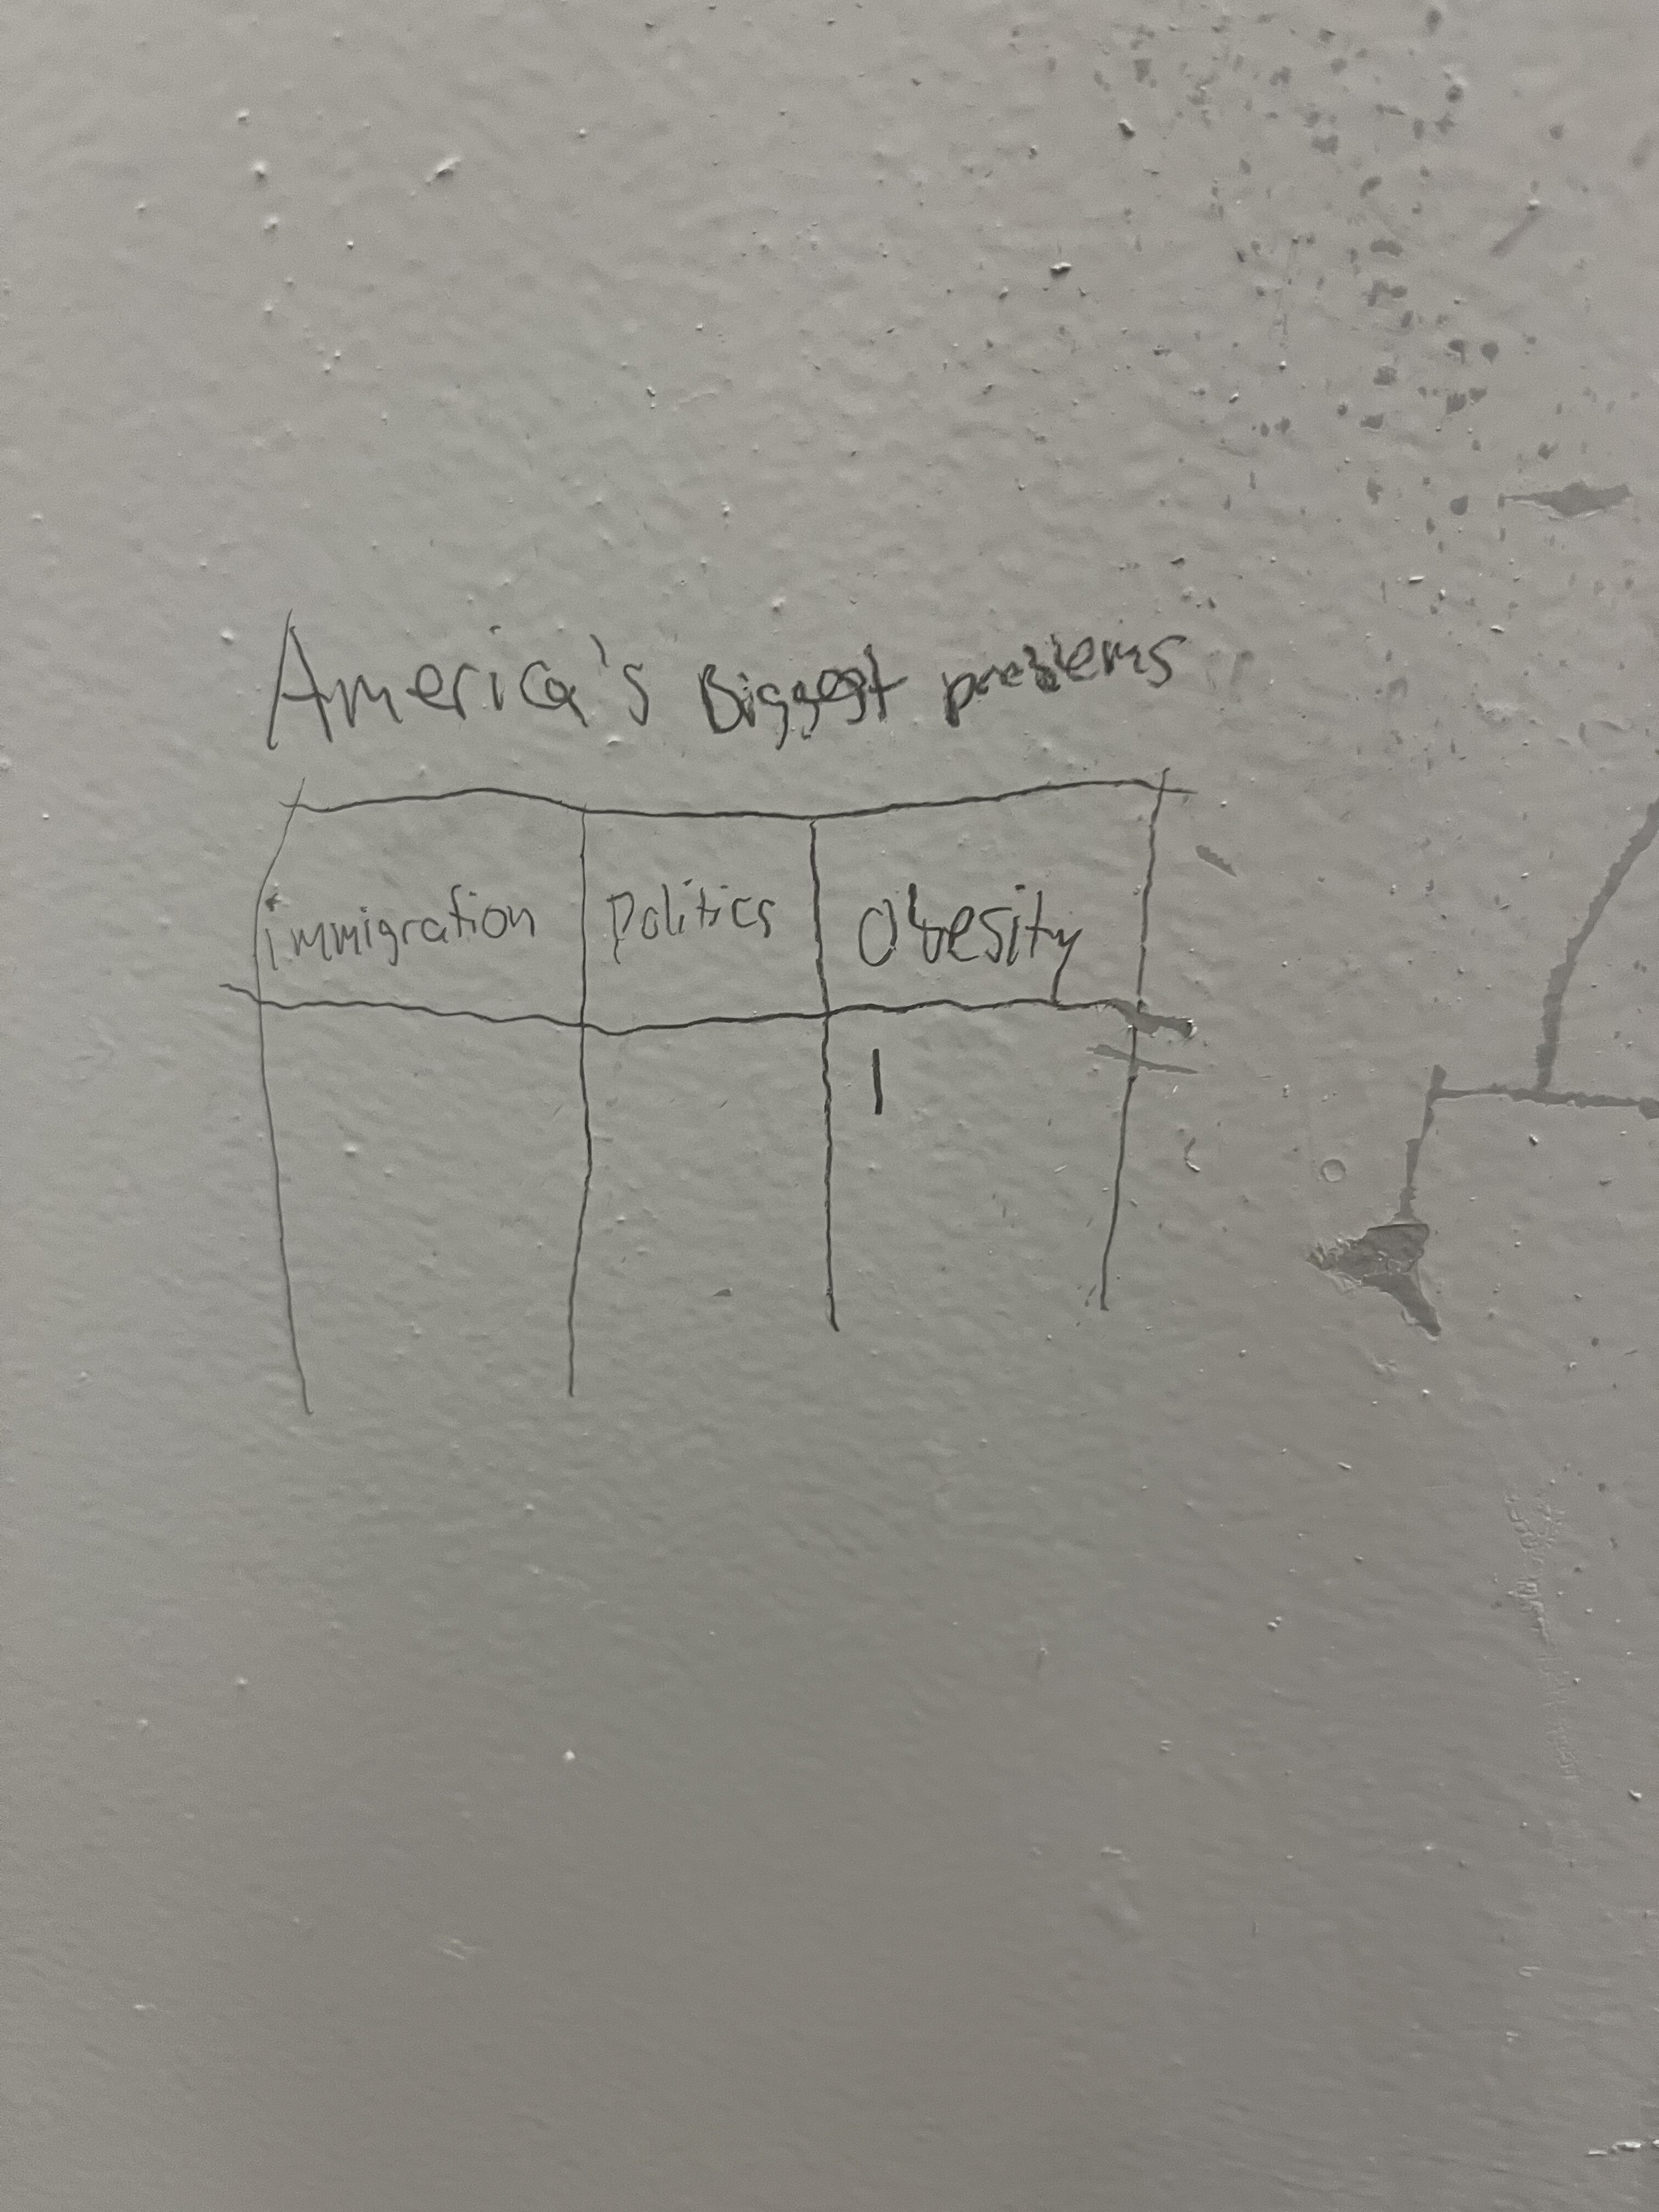 America's Biggest problems
immigration Politics Obesity
|